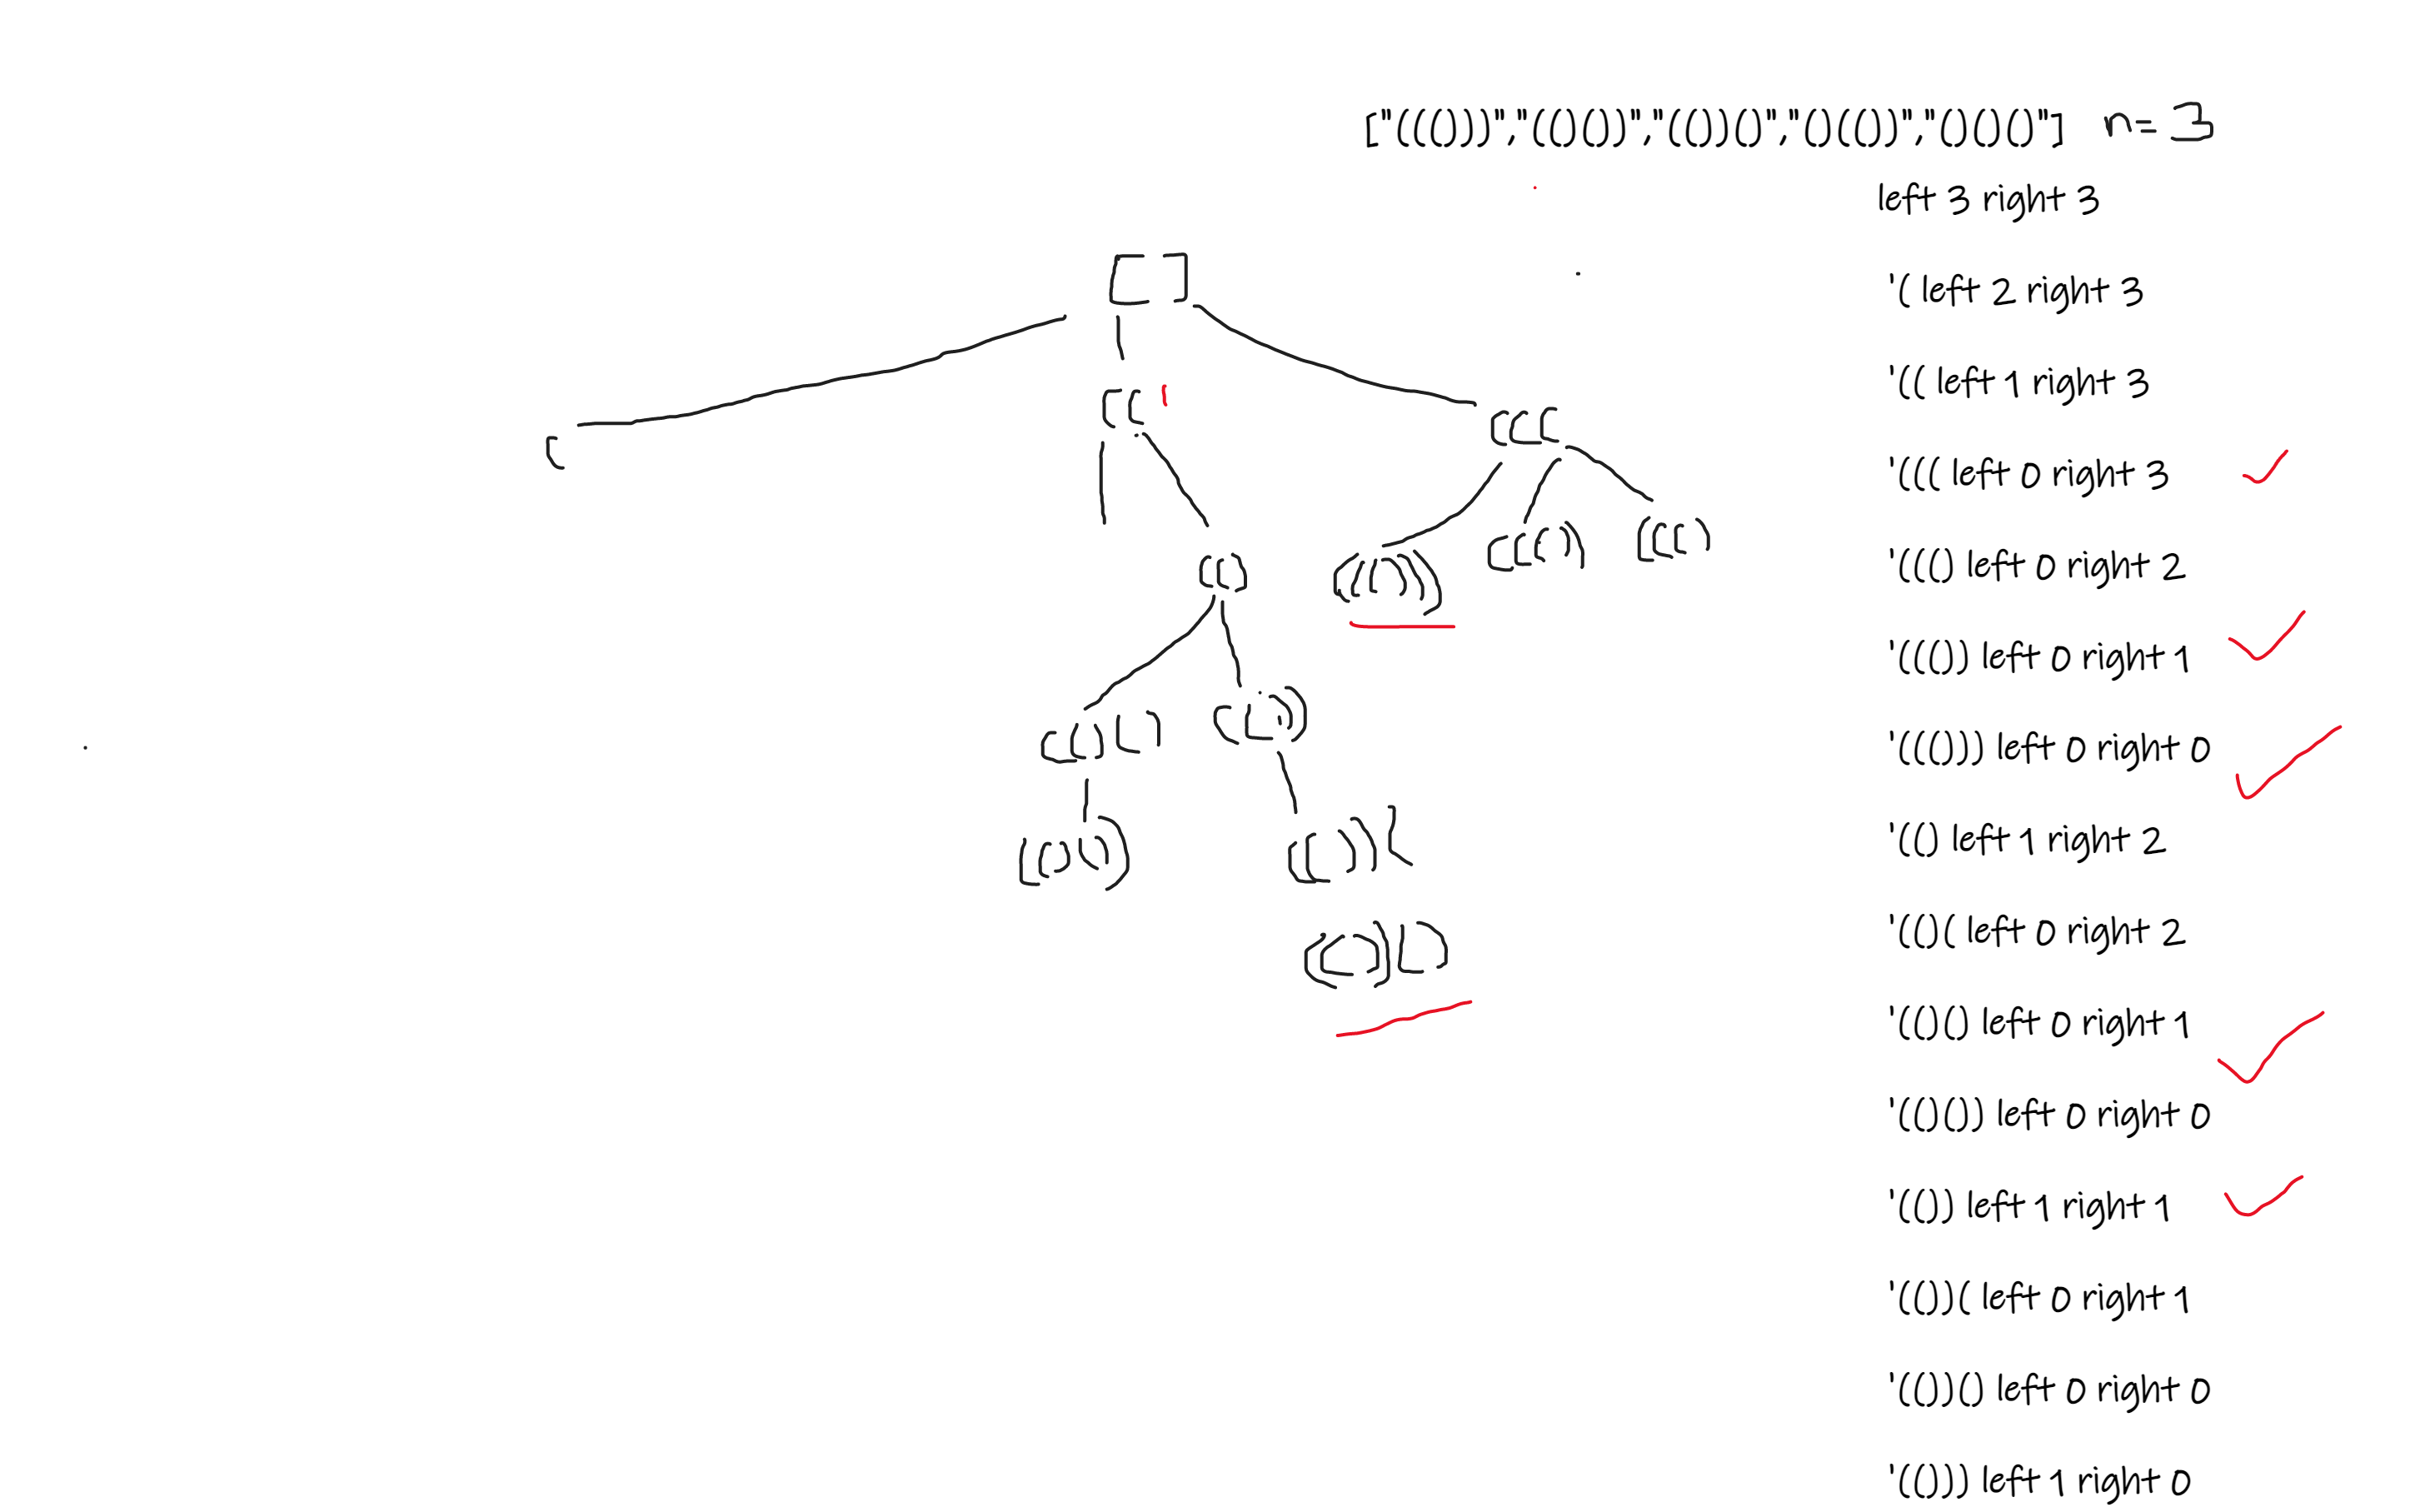 ["((()))","(()())","(())()","()(())","()()()"] n=3
left 3 right 3
[ ]
'( left 2 right 3
'(( left 1 right 3
((
(((
(
'((( left 0 right 3
(((())
((()
'((() left 0 right 2
(()
((()))
'((()) left 0 right 1
(()()
(())
'((())) left 0 right 0
'(() left 1 right 2
(()())
(())(
'(()( left 0 right 2
(())()
'(()() left 0 right 1
'(()()) left 0 right 0
'(()) left 1 right 1
'(())( left 0 right 1
'(())() left 0 right 0
'(())) left 1 right 0